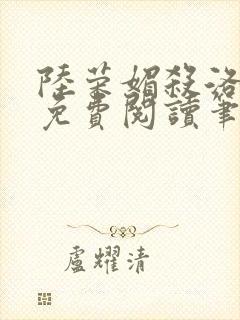 陸荣媚殺洛
免費閱讀筆
盧耀清